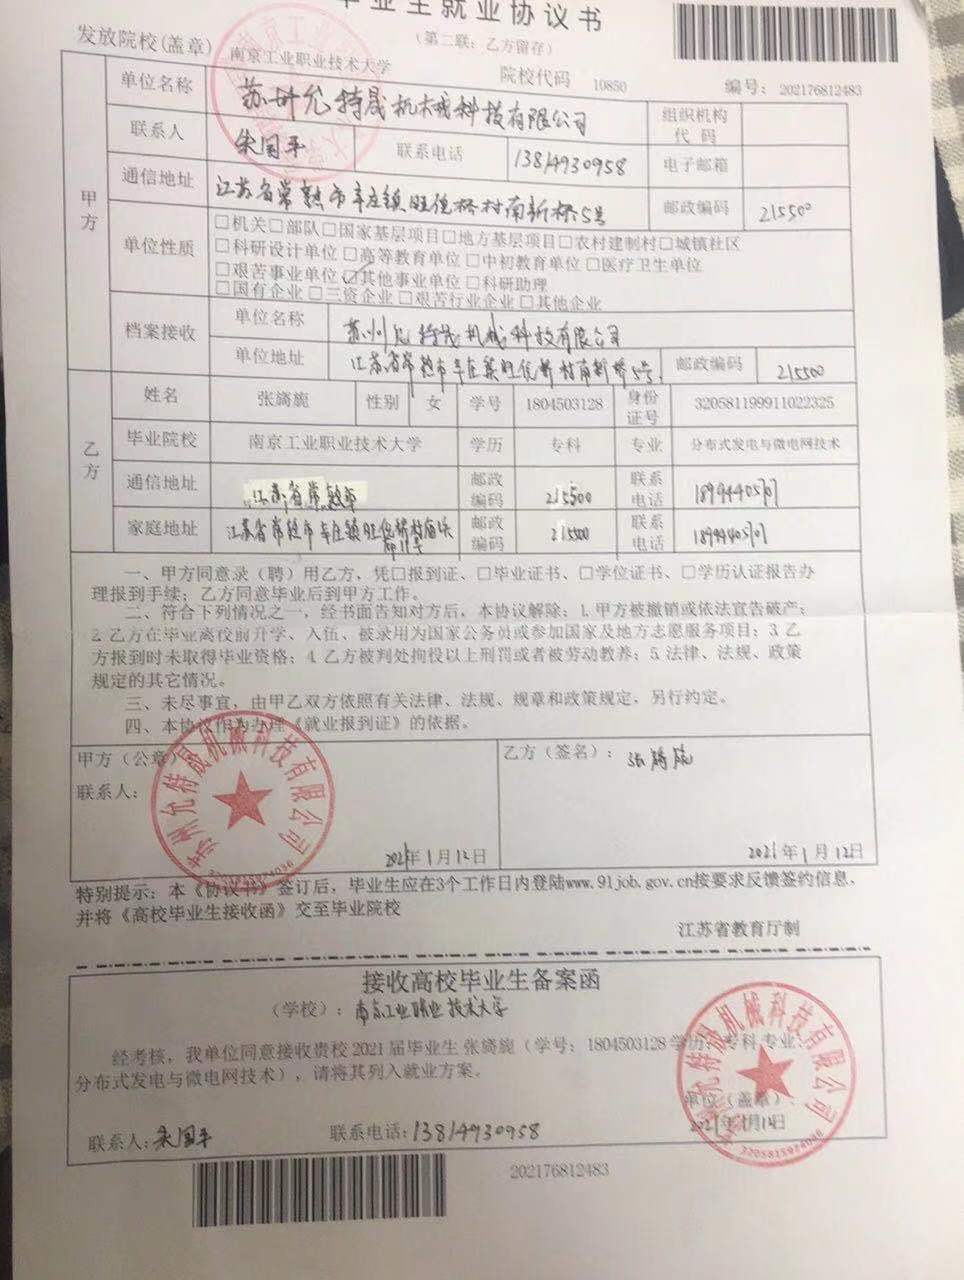 毕业生就业协议书
(第二联：乙方留存)
发放院校(盖章) 南京工业职业技术大学 院校代码 10850 编号： 202176812483
甲方
单位名称 苏州允特晟机械科技有限公司 组织机构代码
联系人 朱国平 联系电话 13814930958 电子邮箱
通信地址 江苏省常熟市辛庄镇旺倪桥村南新桥5号 邮政编码 215500
单位性质
□机关□部队□国家基层项目□地方基层项目□农村建制村□城镇社区
□科研设计单位□高等教育单位□中初教育单位□医疗卫生单位
□艰苦事业单位☑其他事业单位□科研助理
□国有企业□三资企业□艰苦行业企业□其他企业
档案接收
单位名称 苏州允特晟机械科技有限公司
单位地址 江苏省常熟市辛庄镇旺倪桥村南新桥5号 邮政编码 215500
乙方
姓名 张旖旎 性别 女 学号 1804503128 身份证号 320581199911022325
毕业院校 南京工业职业技术大学 学历 专科 专业 分布式发电与微电网技术
通信地址 江苏省常熟市 邮政编码 215500 联系电话
家庭地址 江苏省常熟市辛庄镇旺倪桥村 邮政编码 215500 联系电话
一、甲方同意录（聘）用乙方，凭□报到证、□毕业证书、□学位证书、□学历认证报告办
理报到手续；乙方同意毕业后到甲方工作。
二、符合下列情况之一，经书面告知对方后，本协议解除：1.甲方被撤销或依法宣告破产；
2.乙方在毕业离校前升学、入伍、被录用为国家公务员或参加国家及地方志愿服务项目；3.乙
方报到时未取得毕业资格；4.乙方被判处拘役以上刑罚或者被劳动教养；5.法律、法规、政策
规定的其它情况。
三、未尽事宜，由甲乙双方依照有关法律、法规、规章和政策规定，另行约定。
四、本协议作为办理《就业报到证》的依据。
甲方（公章） 乙方（签名）：张旖旎
联系人：
苏州允特晟机械科技有限公司
2021年1月12日 2021年1月12日
特别提示：本《协议书》签订后，毕业生应在3个工作日内登陆www.91job.gov.cn按要求反馈签约信息，
并将《高校毕业生接收函》交至毕业院校
江苏省教育厅制
接收高校毕业生备案函
（学校）：南京工业职业技术大学
经考核，我单位同意接收贵校2021届毕业生 张旖旎（学号：1804503128 学历：专科 专业：
分布式发电与微电网技术），请将其列入就业方案。
单位（盖章）：
苏州允特晟机械科技有限公司
联系人：朱国平 联系电话：13814930958
202176812483